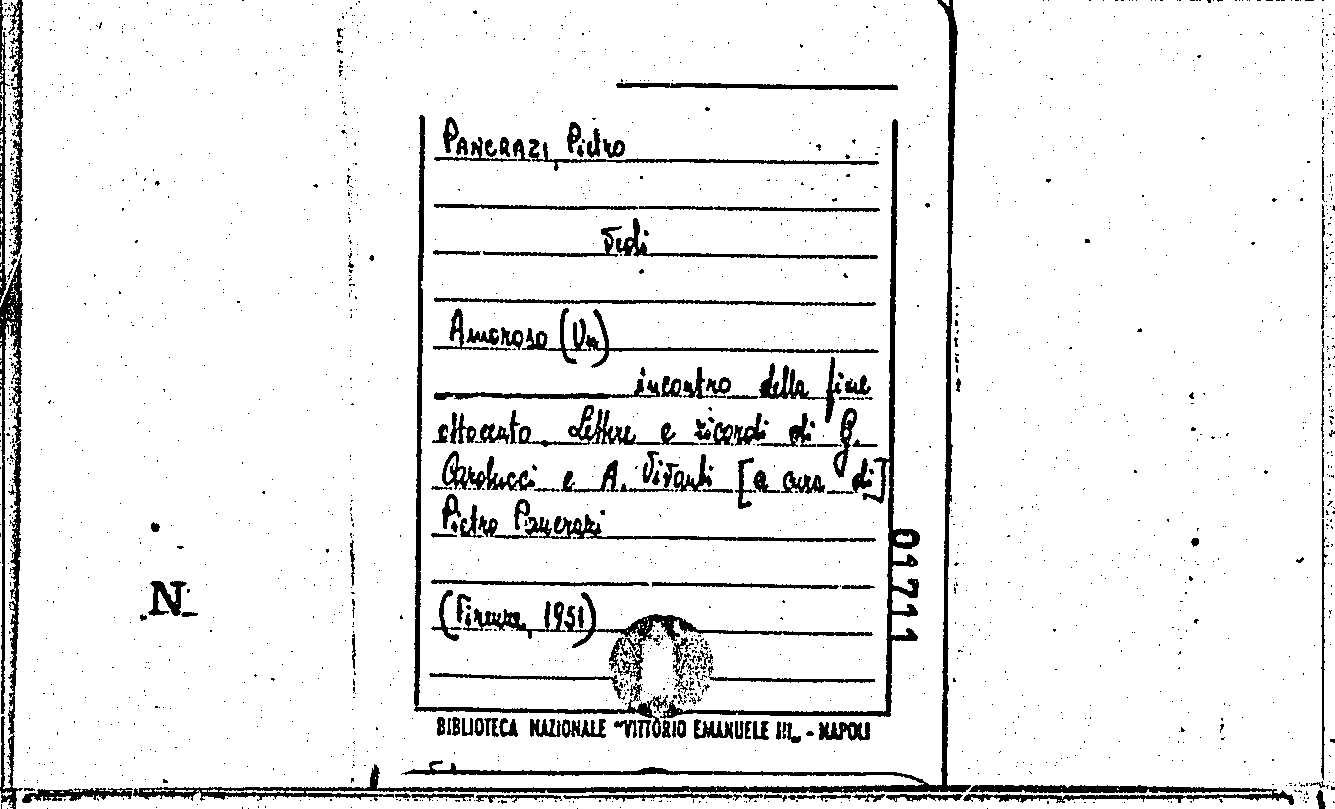 PANCRAZI, Pietro
Vedi
Amoroso (Un)
incontro della fine
ottocento. Lettere e ricordi di G.
Carducci e A. Vivanti [a cura di]
Pietro Pancrazi
(Firenze, 1951)
BIBLIOTECA NAZIONALE "VITTORIO EMANUELE III„ - NAPOLI
01711
N